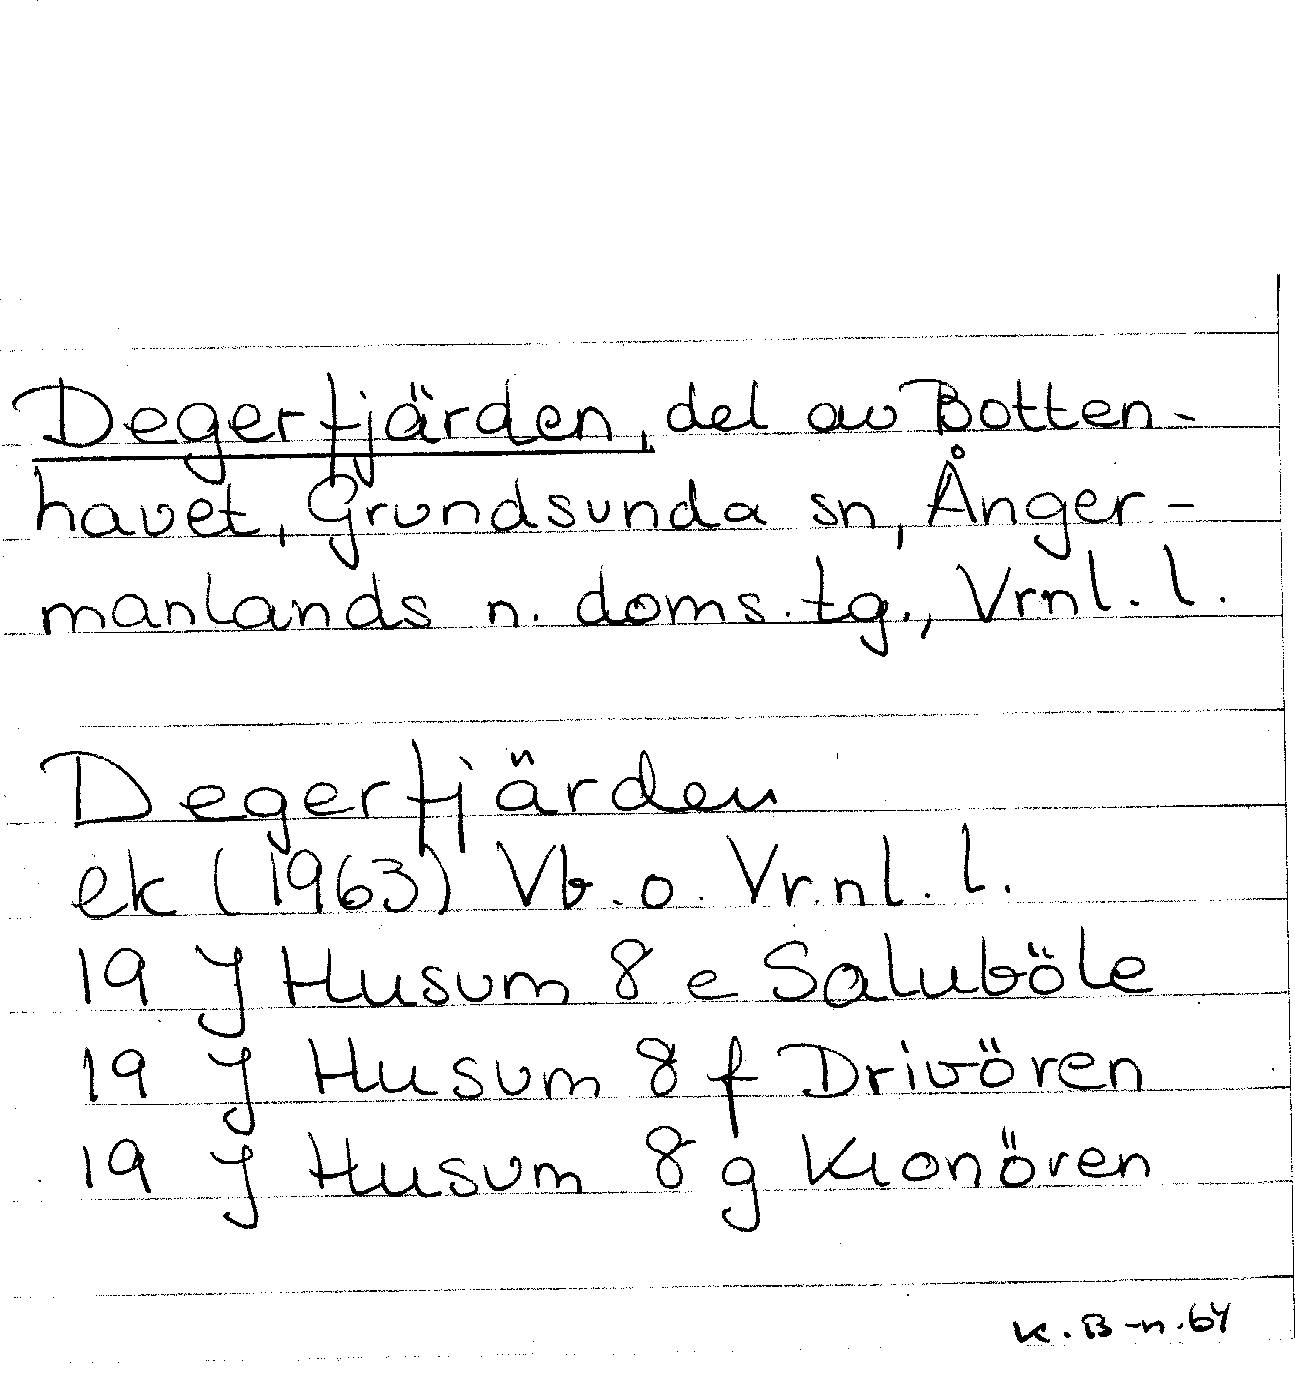 Degerfjärden, del av Botten-
havet, Grundsunda sn, Ånger-
manlands n. doms. tg., Vrnl. l.
Degerfjärden
ek (1963) Vb. o. Vr.nl. l.
19 J Husum 8 e Saluböle
19 J Husum 8 f Drivören
19 J Husum 8 g Kronören
K. B-n. 64